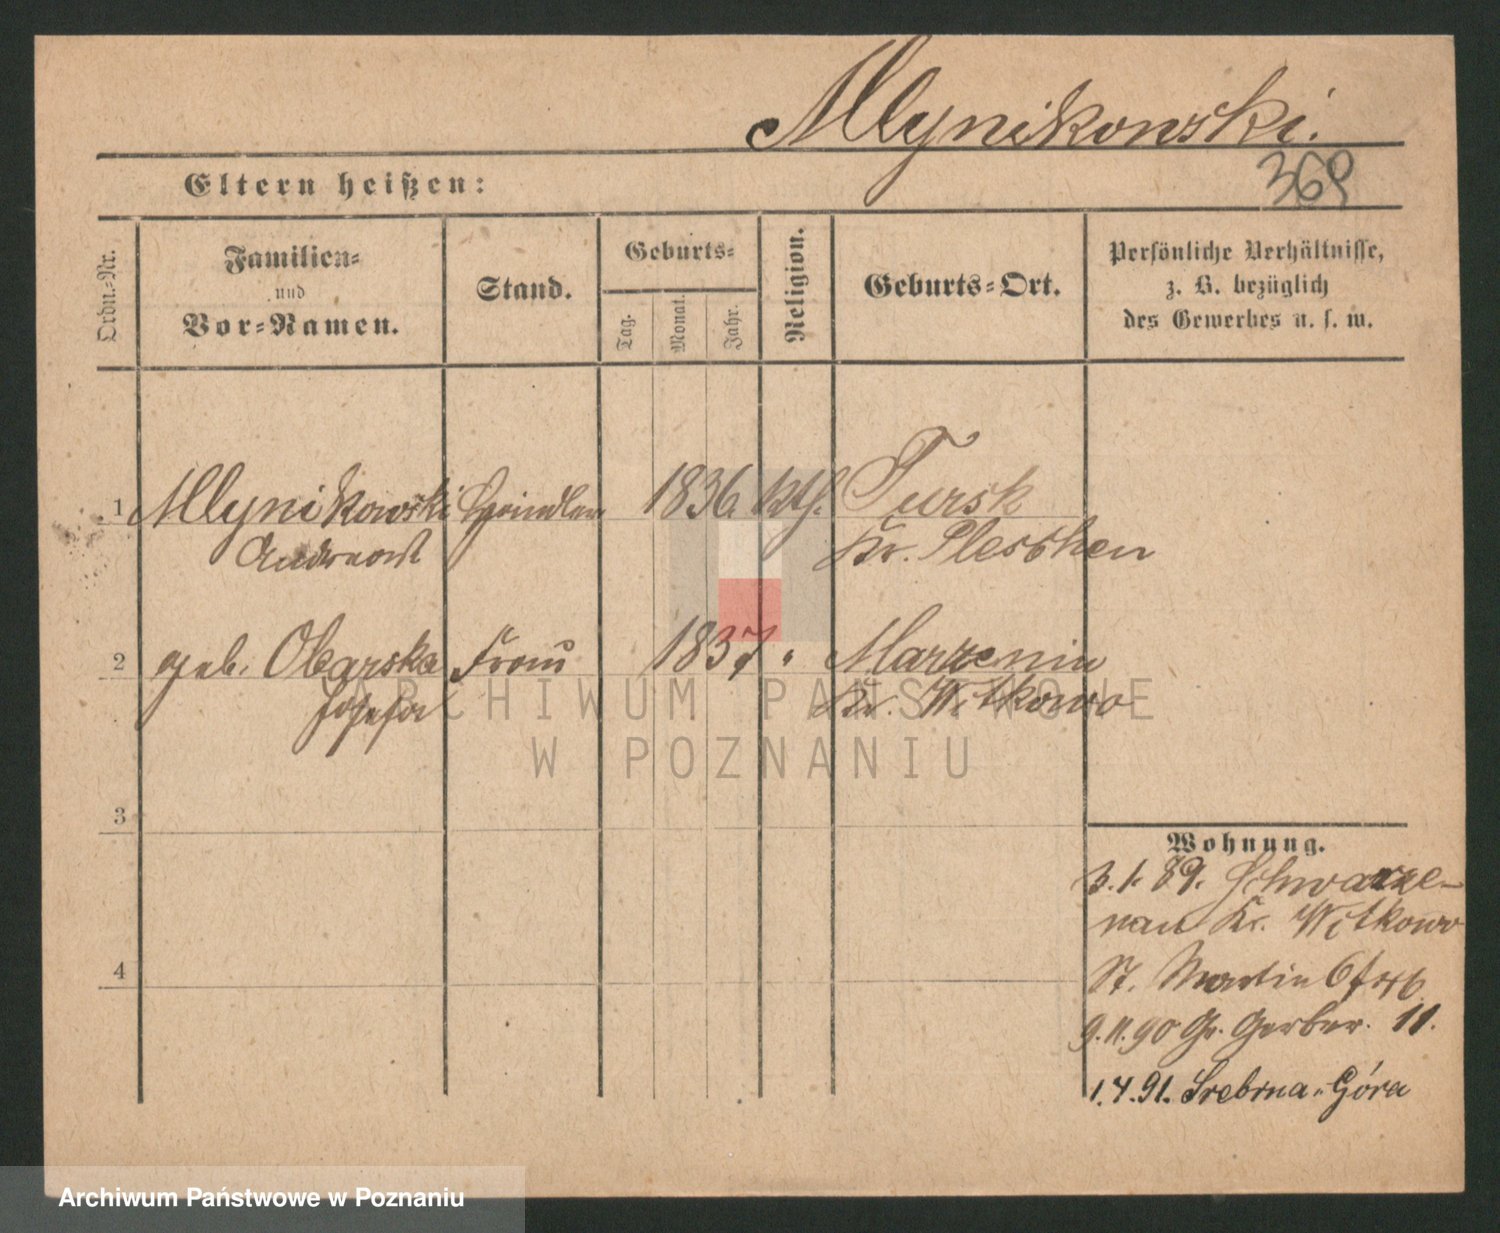 Mlynikowski.
369
Eltern heißen:
Ordn.-Nr.
Familien-
und
Vor-Namen.
Stand.
Geburts-
Tag.
Monat.
Jahr.
Religion.
Geburts-Ort.
Persönliche Verhältnisse,
z. B. bezüglich
des Gewerbes u. s. w.
1 Mlynikowski 1836. kth. Tursk
Andreas Kr. Pleschen
2 geb. Obarska Frau 1837 " Marzenin
Josefa Kr. Witkowo
3
4
Wohnung.
3.1.89. Schwarze-
nau Kr. Witkowo
St. Martin
9.11.90 Gr. Gerber. 11.
1.4.91. Srebrna-Góra
ARCHIWUM PAŃSTWOWE
W POZNANIU
Archiwum Państwowe w Poznaniu